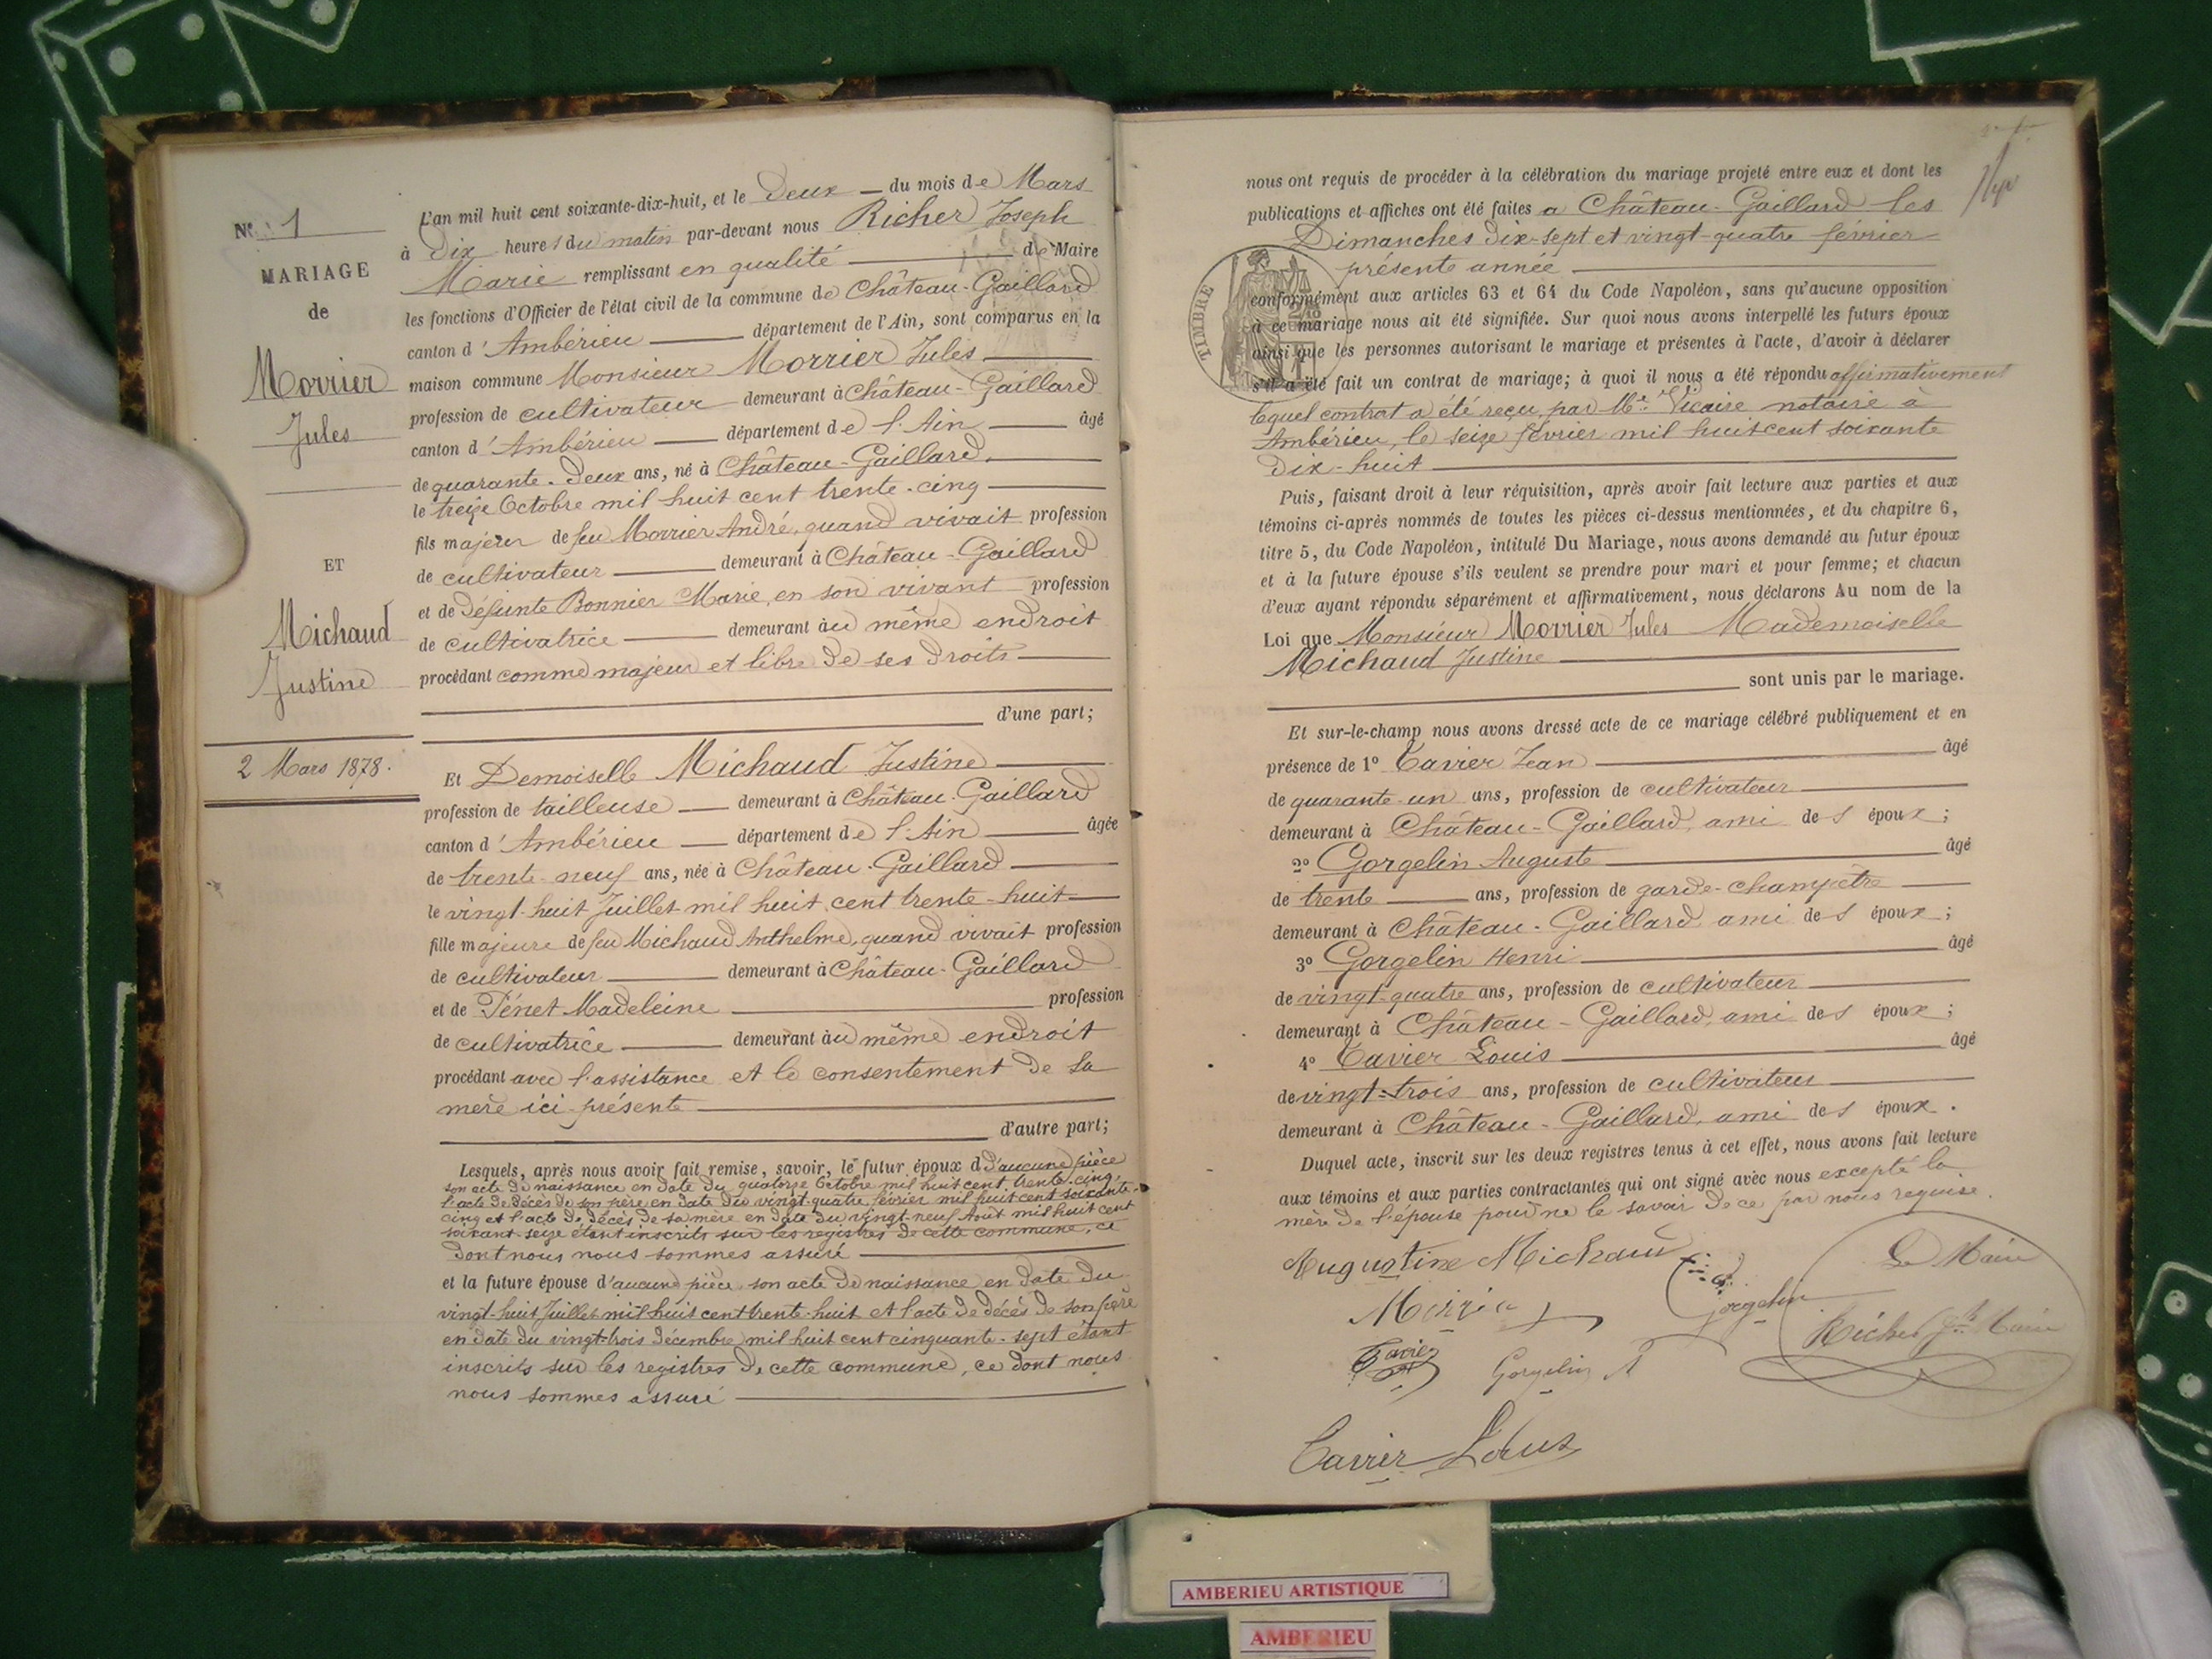 N° 1
MARIAGE
de
Morrier
Jules
ET
Michaud
Justine
2 Mars 1878.
L'an mil huit cent soixante-dix-huit, et le Deux du mois de Mars
à Dix heures du matin par-devant nous Richer Joseph
Marie remplissant en qualité de Maire
les fonctions d'Officier de l'état civil de la commune de Château-Gaillard
canton d'Ambérieu département de l'Ain, sont comparus en la
maison commune Monsieur Morrier Jules
profession de cultivateur demeurant à Château-Gaillard
canton d'Ambérieu département de l'Ain âgé
de quarante-Deux ans, né à Château-Gaillard,
le treize Octobre mil huit cent trente-cinq
fils majeur de feu Morrier André, quand vivait profession
de cultivateur demeurant à Château-Gaillard
et de Défunte Bonnier Marie, en son vivant profession
de cultivatrice demeurant au même endroit
procédant comme majeur et libre de ses Droits
d'une part;
Et Demoiselle Michaud Justine
profession de tailleuse demeurant à Château-Gaillard
canton d'Ambérieu département de l'Ain âgée
de trente-neuf ans, née à Château-Gaillard
le vingt-huit Juillet mil huit cent trente-huit
fille majeure de feu Michaud Anthelme, quand vivait profession
de cultivateur demeurant à Château-Gaillard
et de Pénet Madeleine profession
de cultivatrice demeurant au même endroit
procédant avec l'assistance et le consentement de sa
mère ici présente
d'autre part;
Lesquels, après nous avoir fait remise, savoir, le futur époux d D'aucune pièce
son acte de naissance en date du quatorze Octobre mil huit cent trente-cinq,
l'acte de Décès de son père en date du vingt-quatre février mil huit cent soixante-
cinq et l'acte de décès de sa mère en date du vingt-neuf Août mil huit cent
soixant-seize étant inscrits sur les registres de cette commune, ce
dont nous nous sommes assuré
et la future épouse d'aucune pièce son acte de naissance en date du
vingt-huit Juillet mil huit cent trente-huit et l'acte de décès de son père
en date du vingt-trois décembre mil huit cent cinquante-sept étant
inscrits sur les registres de cette commune, ce dont nous
nous sommes assuré
nous ont requis de procéder à la célébration du mariage projeté entre eux et dont les
publications et affiches ont été faites a Château-Gaillard les
Dimanches dix-sept et vingt-quatre février
présente année
TIMBRE
conformément aux articles 63 et 64 du Code Napoléon, sans qu'aucune opposition
à ce mariage nous ait été signifiée. Sur quoi nous avons interpellé les futurs époux
ainsi que les personnes autorisant le mariage et présentes à l'acte, d'avoir à déclarer
s'il a été fait un contrat de mariage; à quoi il nous a été répondu affirmativement
lequel contrat a été reçu par Me Vicaire notaire à
Ambérieu, le seize février mil huit cent soixante
Dix-huit
Puis, faisant droit à leur réquisition, après avoir fait lecture aux parties et aux
témoins ci-après nommés de toutes les pièces ci-dessus mentionnées, et du chapitre 6,
titre 5, du Code Napoléon, intitulé Du Mariage, nous avons demandé au futur époux
et à la future épouse s'ils veulent se prendre pour mari et pour femme; et chacun
d'eux ayant répondu séparément et affirmativement, nous déclarons Au nom de la
Loi que Monsieur Morrier Jules Mademoiselle
Michaud Justine
sont unis par le mariage.
Et sur-le-champ nous avons dressé acte de ce mariage célébré publiquement et en
présence de 1° Tavier Jean âgé
de quarante-un ans, profession de cultivateur
demeurant à Château-Gaillard, ami des époux;
2° Gorgelin Auguste âgé
de trente ans, profession de garde-champêtre
demeurant à Château-Gaillard, ami des époux;
3° Gorgelin Henri âgé
de vingt-quatre ans, profession de cultivateur
demeurant à Château-Gaillard, ami des époux;
4° Tavier Louis âgé
de vingt-trois ans, profession de cultivateur
demeurant à Château-Gaillard, ami des époux.
Duquel acte, inscrit sur les deux registres tenus à cet effet, nous avons fait lecture
aux témoins et aux parties contractantes qui ont signé avec nous excepté la
mère de l'épouse pour ne le savoir de ce par nous requise.
Augustine Michaud
Le Maire
Morrier
gorgelin
Richer Jph Marie
Tavier
Gorgelin A
Tavier Louis
AMBERIEU ARTISTIQUE
AMBERIEU